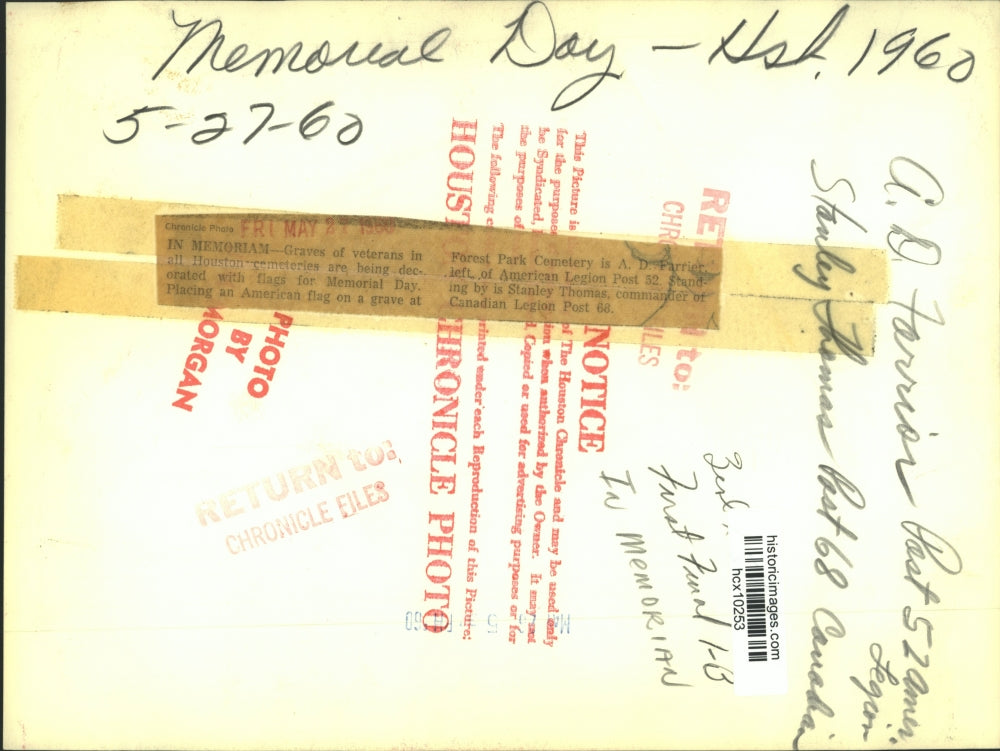 Memorial Day - Hst. 1960
5-27-60
Chronicle Photo FRI MAY 27 1960
IN MEMORIAM—Graves of veterans in
all Houston cemeteries are being dec-
orated with flags for Memorial Day.
Placing an American flag on a grave at
Forest Park Cemetery is A. D. Farrier,
left, of American Legion Post 52. Stand-
ing by is Stanley Thomas, commander of
Canadian Legion Post 68.
A. D. Farrior Post 52 Amer.
Legion
Stanley Thomas Post 68 Canadian
RETURN to:
CHRONICLE FILES
PHOTO
BY
MORGAN
RETURN to:
CHRONICLE FILES
NOTICE
This Picture is of The Houston Chronicle and may be used only
for the purpose when authorized by the Owner. It may not
be Syndicated, Copied or used for advertising purposes or for
the purposes of
The following printed under each Reproduction of this Picture:
HOUSTON CHRONICLE PHOTO
First 1-B
IN MEMORIAN
historicimages.com
hcx10253